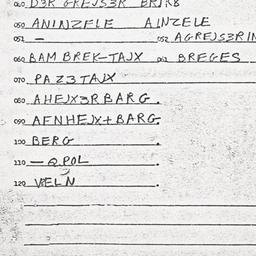 040 D3R GREJS3R BRIRB
050 ANINZELE AINZELE
051 — 052 AGREJS3RIN
060 BAM BREK-TAJX 061 BREGES
070 PAZ3TAJX
080 AHEJX3RBARG.
090 AFNHEJX+BARG
100 BERG.
110 —QPOL.
120 VELN.